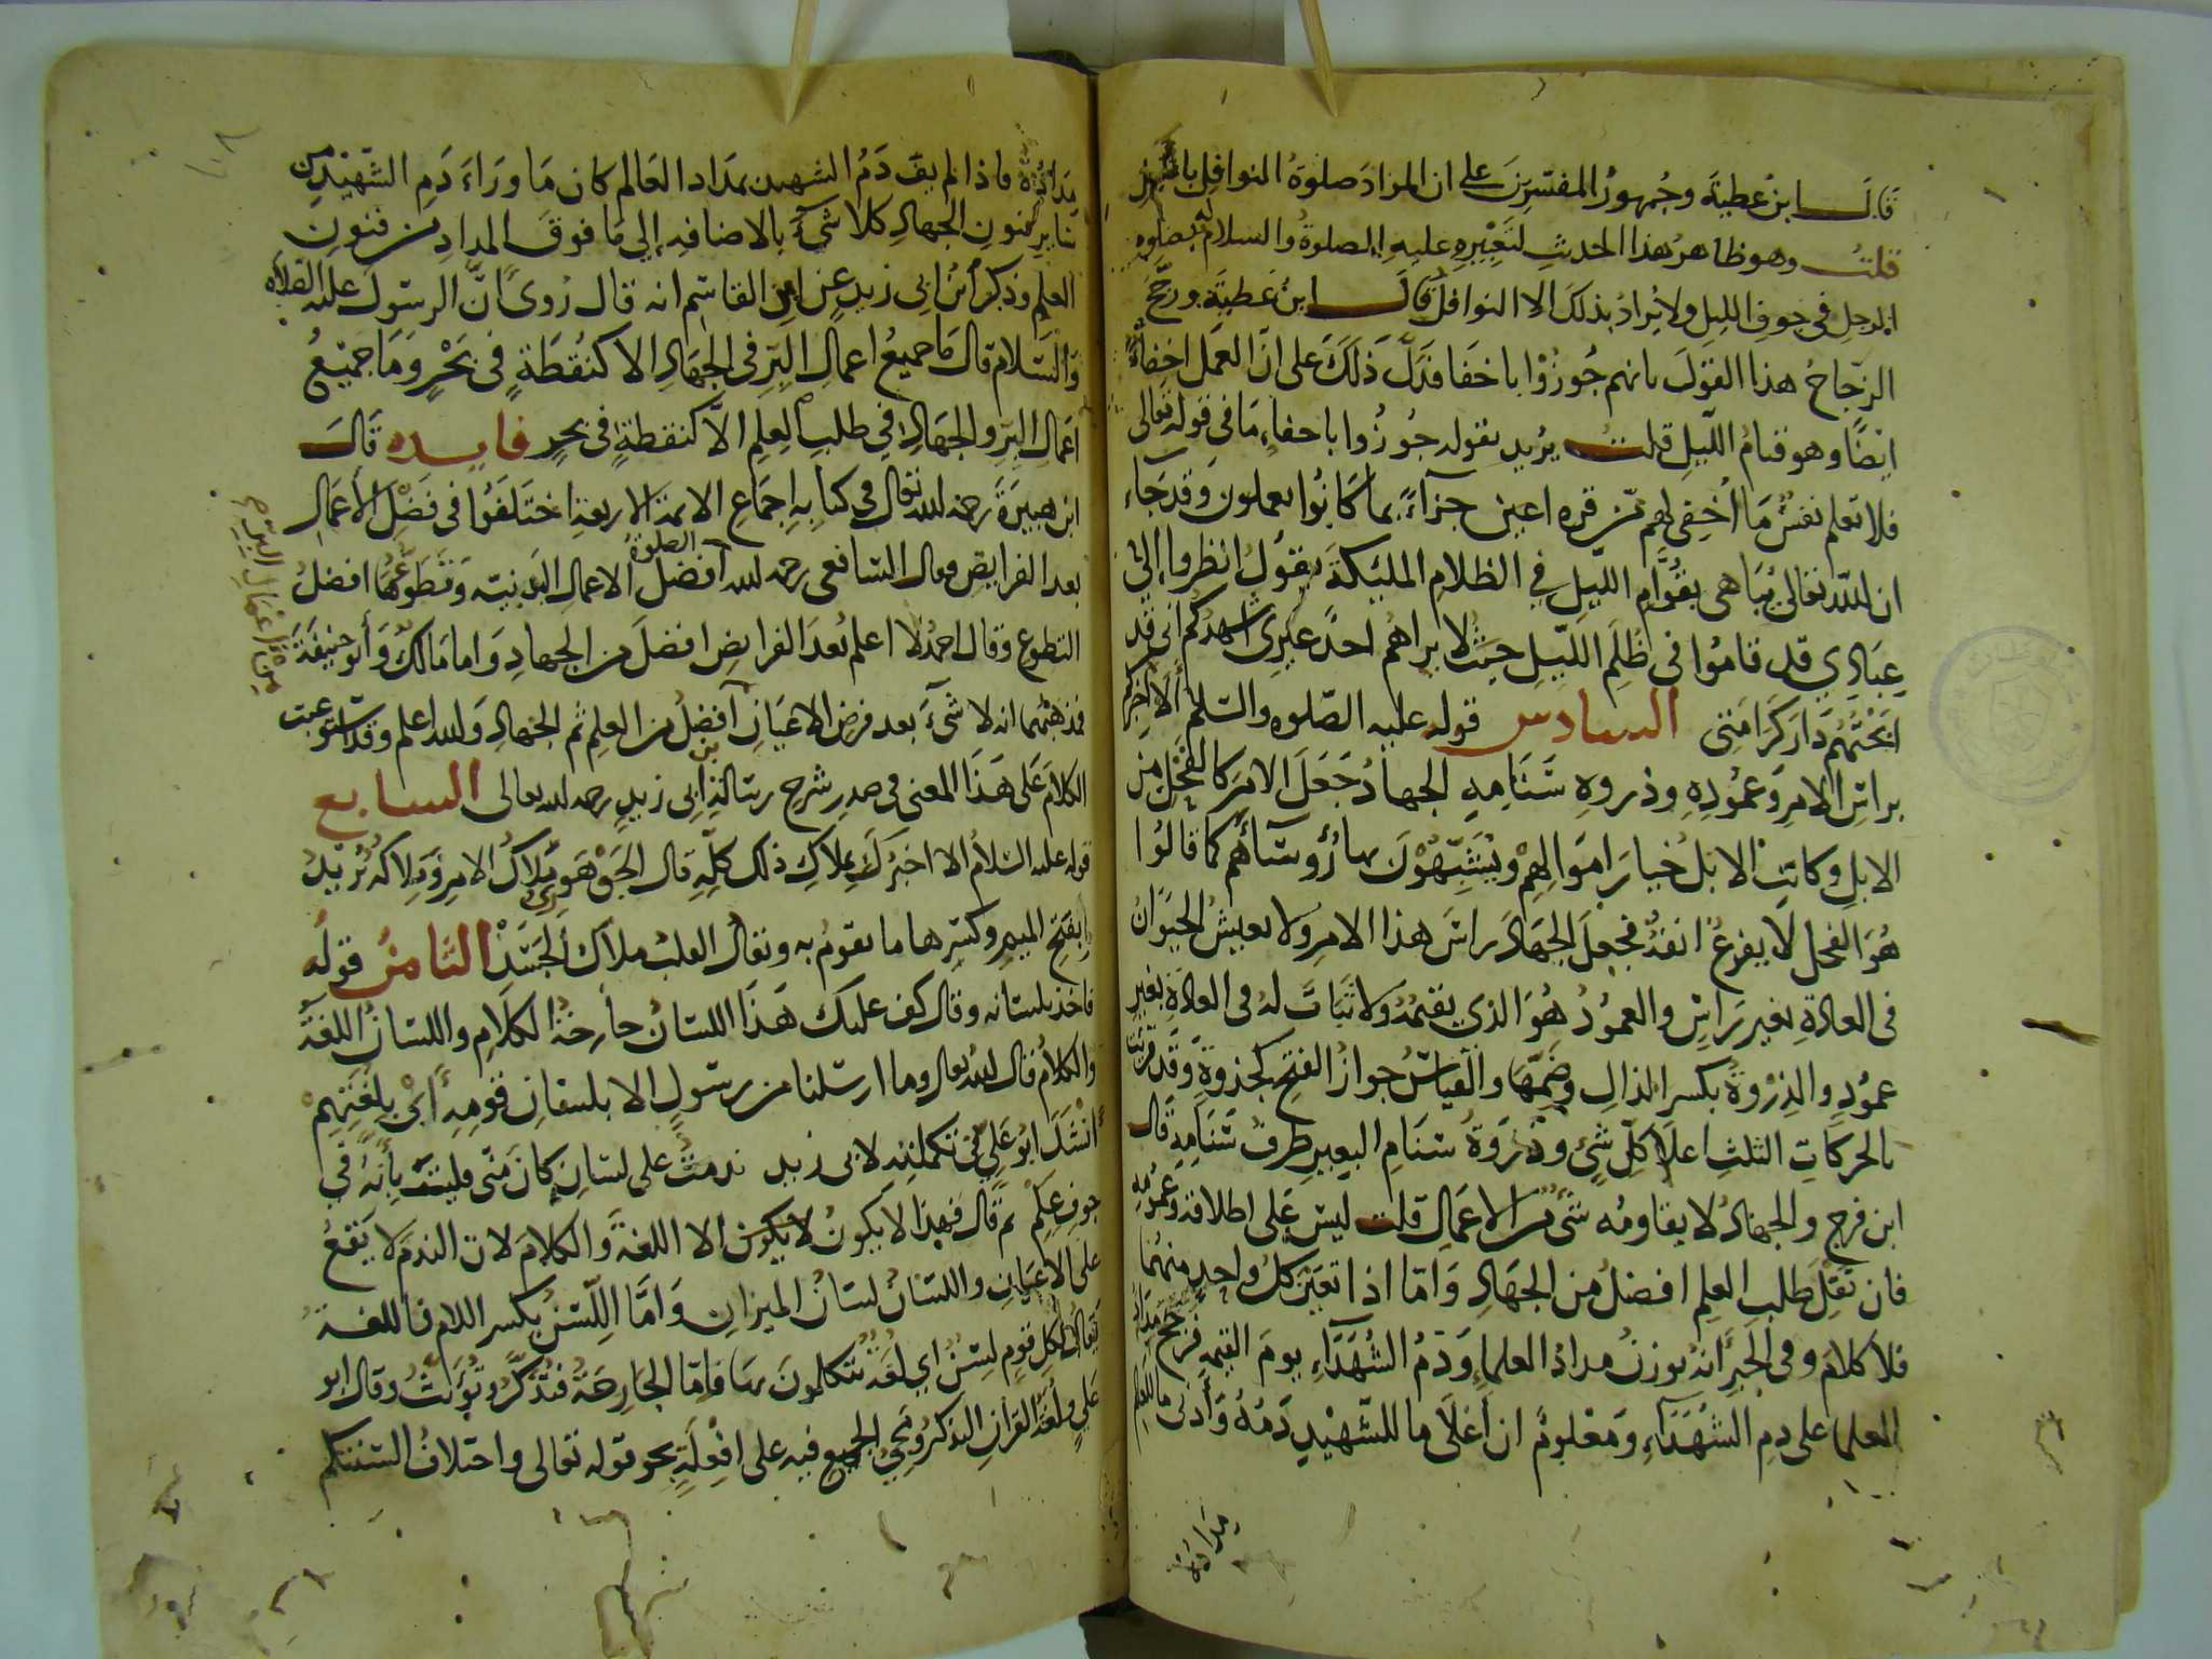 قال ابن عطية وجمهور المفسرين على ان المراد صلوة النوافل بالليل
قلت وهو ظاهر هذا الحديث لتعبيره عليه الصلوة والسلام له بصلوه
الرجل في جوف الليل ولا يراد بذلك الا النوافل قال ابن عطية ورجح
الزجاح هذا القول بانهم جوزوا باخفا فدل ذلك على ان العمل اخفاء
ايضا وهو قيام الليل قلت يريد بقوله جوزوا باخفاء ما في قوله تعالى
فلا تعلم نفس ما اخفي لهم من قره اعين جزآء بما كانوا يعملون وقد جاء
ان الله تعالى يباهى بقوام الليل في الظلام المليكة يقول انظروا إلى
عبادي قد قاموا فى ظلم الليل حيث لا يراهم احد غيرى اشهدكم انى قد
ابحتهم دار كرامتى السادس قوله عليه الصلوه والسلم ألا اخبركم
براس الامر وعموده وذروه سنامه الجهاد جعل الامر كالفحل من
الابل وكانت الابل خيار اموالهم ويشبهون بها رؤوسآهم كما قالوا
هو الفحل لا يقرع انفه فجعل الجهاد راس هذا الامر ولا يعيش الحيوان
فى العادة بغير راس والعمود هو الذي يقيمه ولا ثبات له فى العادة بغير
عمود والذروة بكسر الذال وضمها والقياس جواز الفتح كجذوة وقد قريت
بالحركات الثلث اعلا كل شئ وذروة سنام البعير طرف سنامه قال
ابن فرج والجهاد لا يقاومه شى من الاعمال قلت ليس على اطلاقه وعمومه
فان نقل طلب العلم افضل من الجهاد واما اذا تعين كل واحد منهما
فلا كلام وفى الخبر انه يوزن مداد العلماء ودم الشهدآء يوم القيمة فيرجح مداد
العلما على دم الشهدآء ومعلوم ان أعلا ما للشهيد دمه وأدنى ما للعلم
مداده
مداده فاذا لم يف دم الشهيد بمداد العالم كان ما ورآء دم الشهيد من
ساير فنون الجهاد كلا شىء بالاضافه إلي ما فوق المداد من فنون
العلم وذكر ابن ابى زيد عن ابن القاسم انه قال روى ان الرسول عليه الصلاه
والسلام قال ما جميع اعمال البر فى الجهاد الا كنقطة في بحر وما جميع
اعمال البر والجهاد في طلب العلم الا كنقطة فى بحر فايده قال
ابن هبيرة رحمه الله تعالى فى كتابه اجماع الايمة الاربعة اختلفوا فى فضل الأعمال
بعد الفرايض فقال الشافعى رحمه الله الصلوة افضل الاعمال البدنيه وتطوعها افضل
التطوع وقال احمد لا اعلم بعد الفرايض افضل من الجهاد واما مالك وأبو حنيفة
فمذهبهما انه لا شىء بعد فرض الاعيان افضل من العلم ثم الجهاد والله اعلم وقد استوعبت
الكلام على هذا المعنى فى صدر شرح رسالة ابن ابى زيد رحمه الله تعالى السابع
قوله عليه السلام الا اخبرك بملاك ذلك كله قال الجوهرى ملاك الامر وملاكه تريد
بفتح الميم وكسرها ما يقوم به ويقال القلب ملاك الجسد الثامن قوله
فاخذ بلسانه وقال كف عليك هذا اللسان جارحة الكلام واللسان اللغة
والكلام قال الله تعالى وما ارسلنا من رسول الا بلسان قومه أي بلغتهم
أنشد ابو علي في تكملته لابى زيد ندمت على لسان كان منى فليت بأنه في
جوف عكم ثم قال فهذا لا يكون لا يكون الا اللغة والكلام لان الندم لا يقع
على الاعيان واللسان لسان الميزان واما اللسن بكسر اللام فاللغة
يقال لكل قوم لسن اي لغة يتكلمون بها فاما الجارحة فتذكر وتؤنث وقال ابو
علي ولغة القران التذكير ويجي الجميع فيه على افعلة نحو قوله تعالى واختلاف السنتكم
من اعمال البر